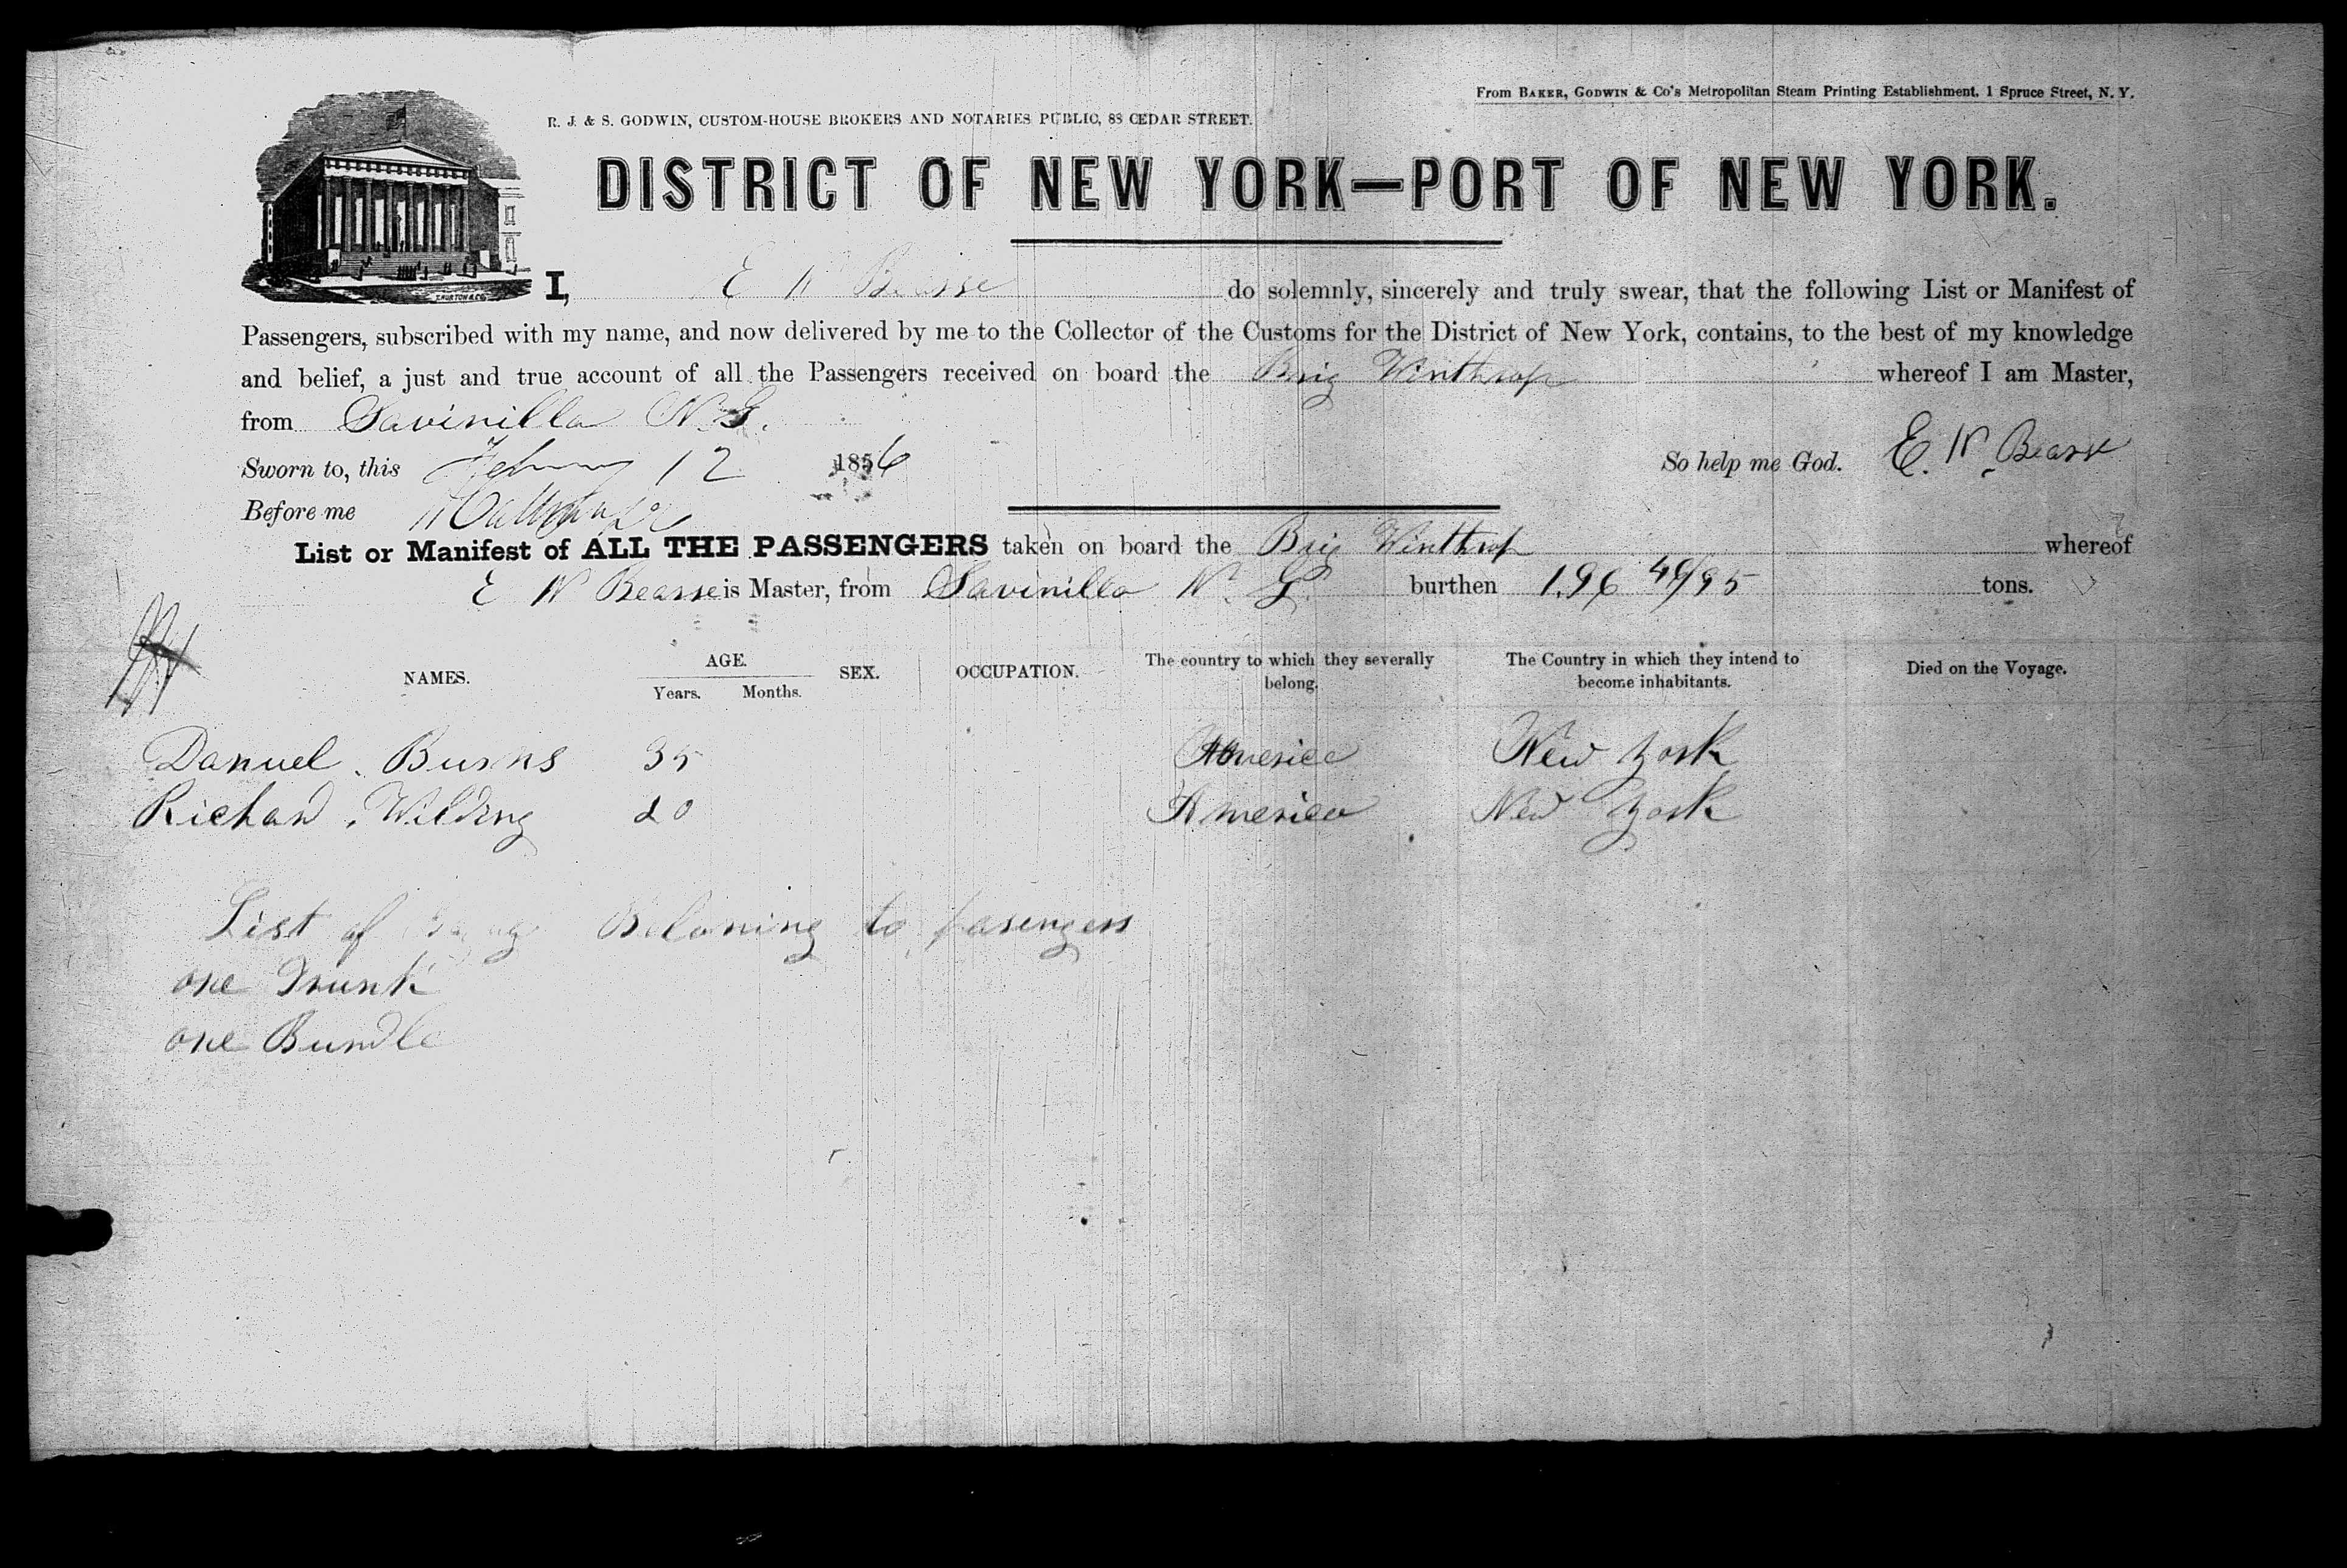 From BAKER, GODWIN & Co's Metropolitan Steam Printing Establishment, 1 Spruce Street, N. Y.
R. J. & S. GODWIN, CUSTOM-HOUSE BROKERS AND NOTARIES PUBLIC, 88 CEDAR STREET.
DISTRICT OF NEW YORK—PORT OF NEW YORK.
I, E W Bearse do solemnly, sincerely and truly swear, that the following List or Manifest of
Passengers, subscribed with my name, and now delivered by me to the Collector of the Customs for the District of New York, contains, to the best of my knowledge
and belief, a just and true account of all the Passengers received on board the Brig Winthrop whereof I am Master,
from Savinilla N. G.
Sworn to, this February 12 1856 So help me God. E. W. Bearse
Before me
List or Manifest of ALL THE PASSENGERS taken on board the Brig Winthrop whereof
E W Bearse is Master, from Savinilla N. G. burthen 196 46/95 tons.
NAMES. AGE. Years. Months. SEX. OCCUPATION. The country to which they severally belong. The Country in which they intend to become inhabitants. Died on the Voyage.
Danuel. Burns 35 America New York
Richard. Wilding 20 America New York
List of Beloning to pasengers
one Trunk
one Bundle